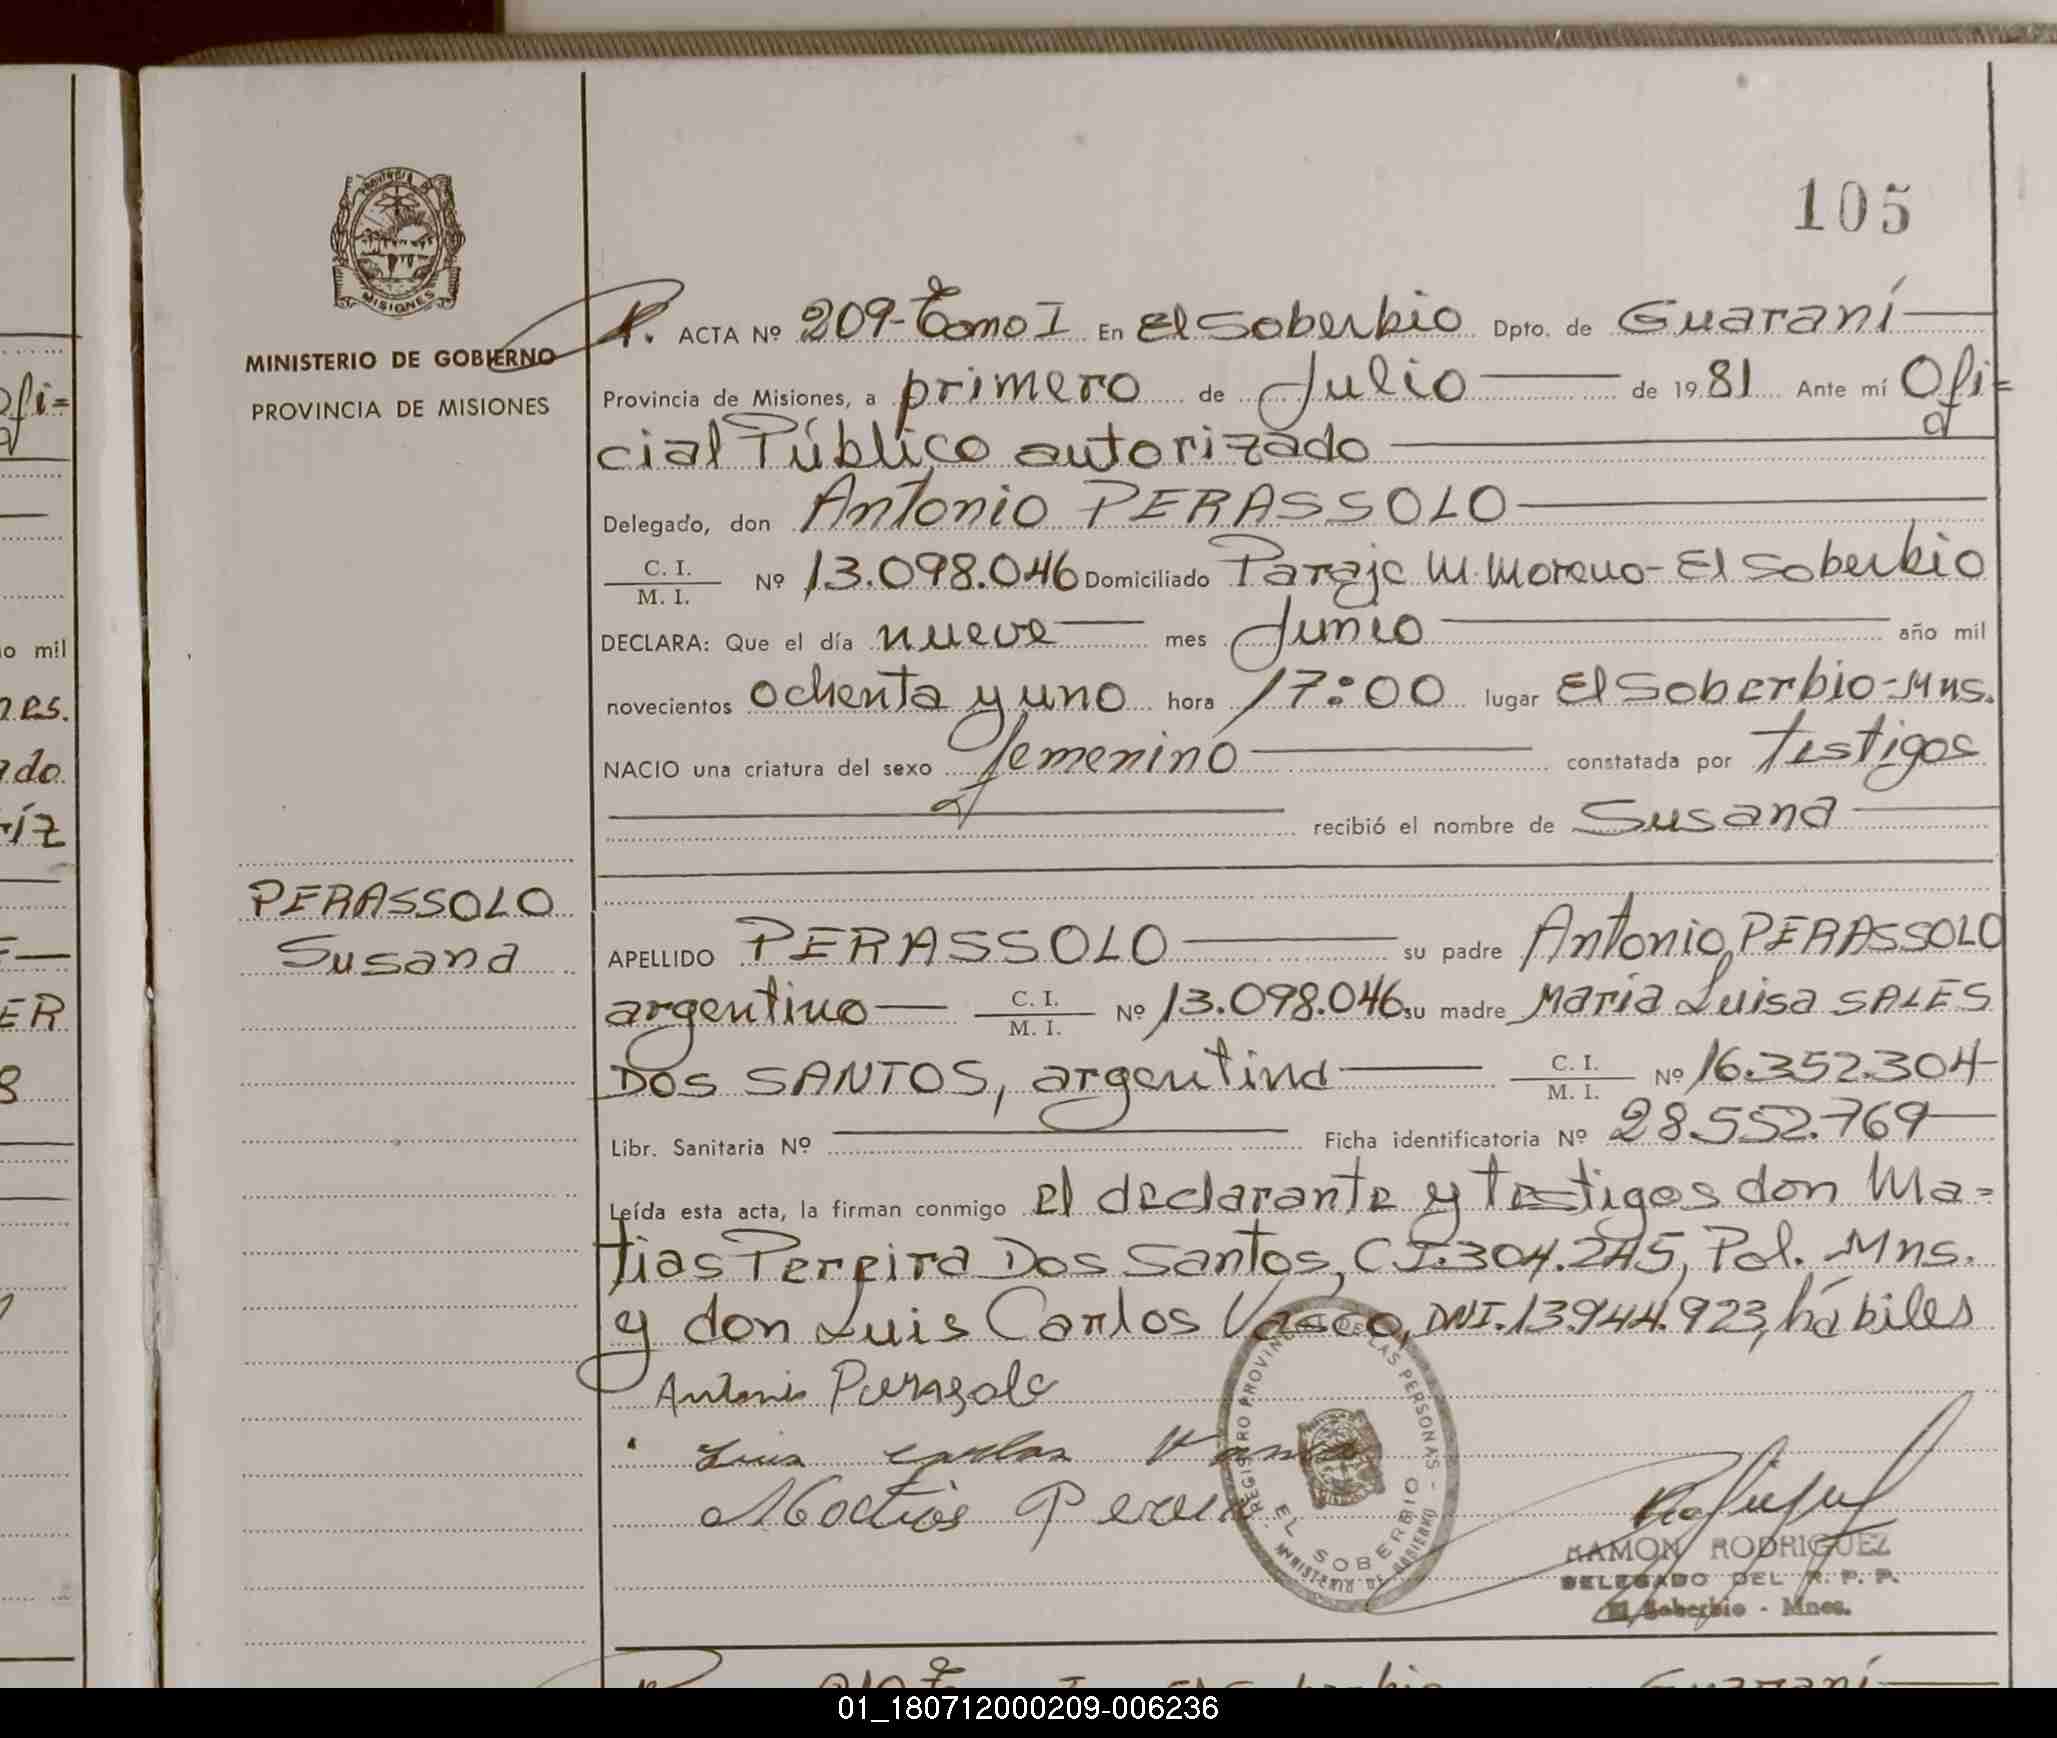 105
PROVINCIA DE
MISIONES
MINISTERIO DE GOBIERNO
PROVINCIA DE MISIONES
ACTA Nº 209-Tomo I En El Soberbio Dpto. de Guaraní
Provincia de Misiones, a primero de Julio de 1981 Ante mí Ofi=
cial Público autorizado
Delegado, don Antonio PERASSOLO
C. I.
M. I. Nº 13.098.046 Domiciliado Paraje M. Moreno- El Soberbio
DECLARA: Que el día nueve mes Junio año mil
novecientos ochenta y uno hora 17:00 lugar El Soberbio-Mns.
NACIO una criatura del sexo femenino constatada por testigos
recibió el nombre de Susana
PERASSOLO
Susana
APELLIDO PERASSOLO su padre Antonio PERASSOLO
argentino C. I.
M. I. Nº 13.098.046 su madre Maria Luisa SALES
DOS SANTOS, argentina C. I.
M. I. Nº 16.352.304
Libr. Sanitaria Nº Ficha identificatoria Nº 28.552.769
Leída esta acta, la firman conmigo el declarante y testigos don Ma=
tias Pereira Dos Santos, C.I.304.245, Pol. Mns.
y don Luis Carlos Vasco, DNI.13.944.923, hábiles
Antonio
Luis Carlos
Matias
REGISTRO PROVINCIAL DE LAS PERSONAS -
EL SOBERBIO
MINISTERIO DE GOBIERNO
RAMON RODRIGUEZ
DELEGADO DEL R. P. P.
El Soberbio - Mnes.
ofi=
o mil
nes.
ado.
ríz
ER
01_180712000209-006236